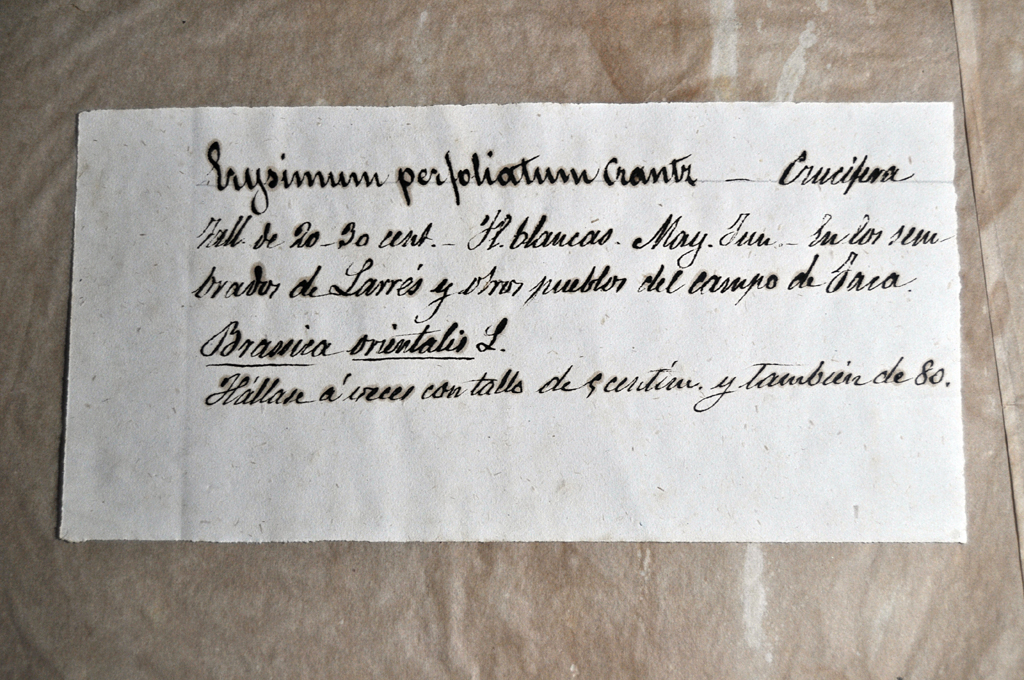 Erysimum perfoliatum Crantz — Crucifera
Tall. de 20-30 cent. - Fl. blancas. May. Jun. - En los sem-
brados de Larrés y otros pueblos del campo de Jaca.
Brassica orientalis L.
Hállase á veces con tallo de 5 centím. y también de 80.